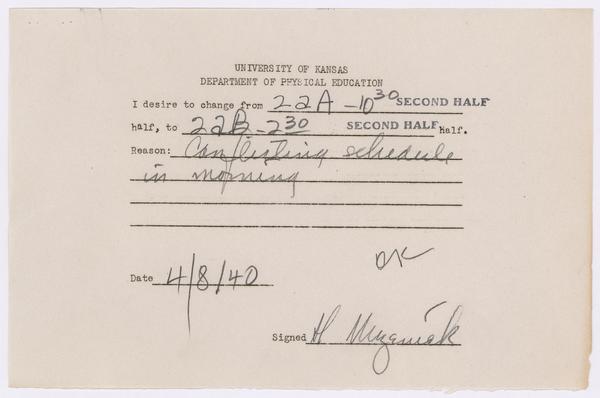 UNIVERSITY OF KANSAS
DEPARTMENT OF PHYSICAL EDUCATION
I desire to change from 22A - 10 30 SECOND HALF
half, to 22B - 2 30 SECOND HALF half.
Reason: Conflicting schedule
in morning
OK
Date 4/8/40
Signed H